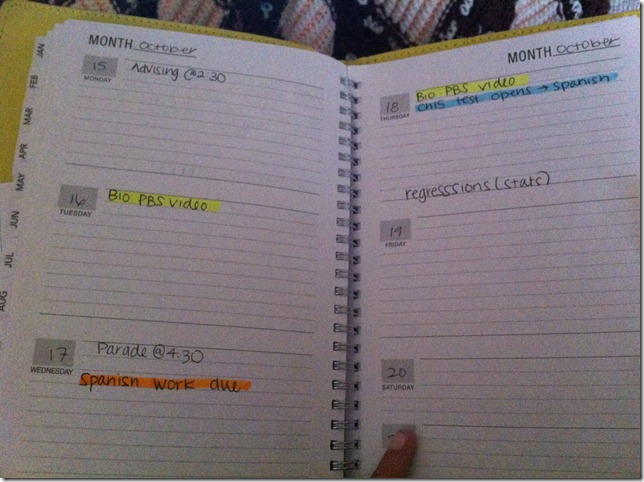 JAN
FEB
MAR
APR
MAY
JUN
JUL
AUG
MONTH October
15
MONDAY
Advising @2:30
16
TUESDAY
Bio PBS video
17
WEDNESDAY
Parade @4:30
Spanish work due
MONTH October
18
THURSDAY
Bio PBS video
Ch15 test opens → Spanish
regresssions (stats)
19
FRIDAY
20
SATURDAY